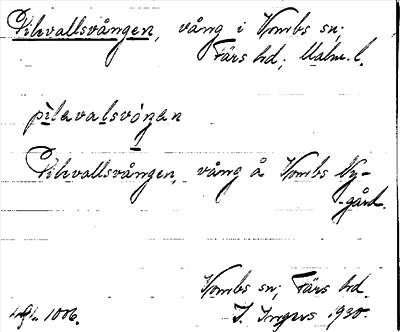 Pilevallsvången, vång i Vombs sn;
Färs hd; Malm. l.
pìlavalsvóŋen
Pilevallsvången, vång å Vombs Ny-
gård.
Vombs sn; Färs hd.
1006. I. Ingers 1930.